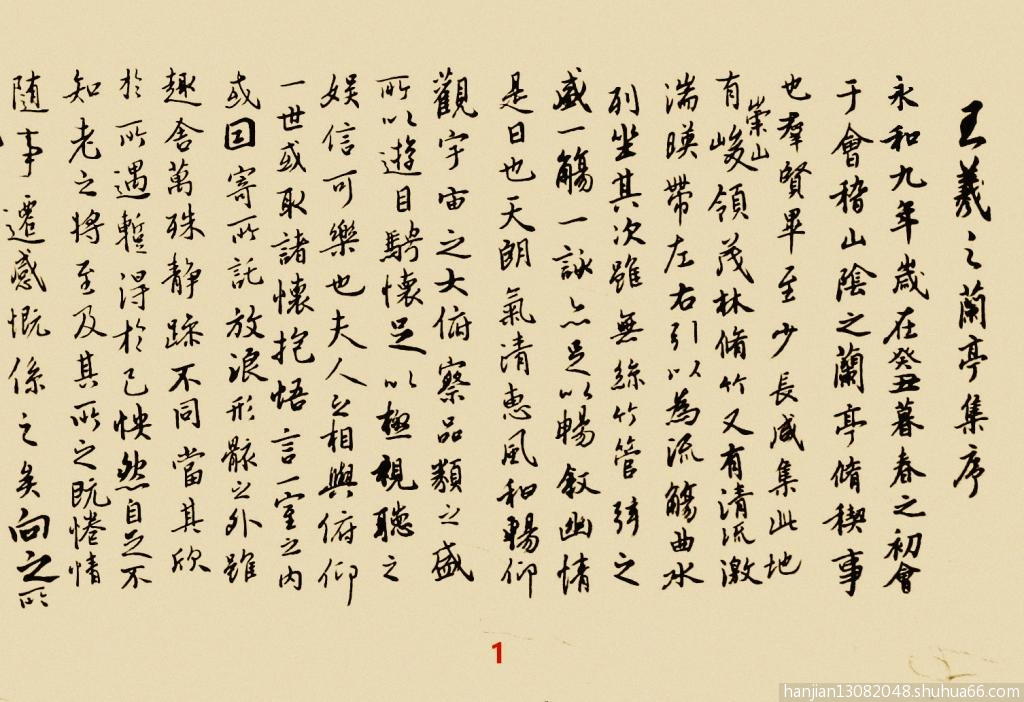 王羲之蘭亭集序
永和九年歲在癸丑暮春之初會
于會稽山陰之蘭亭脩稧事
也羣賢畢至少長咸集此地
有崇山峻領茂林脩竹又有清流激
湍暎帶左右引以為流觴曲水
列坐其次雖無絲竹管弦之
盛一觴一詠亦足以暢敘幽情
是日也天朗氣清惠風和暢仰
觀宇宙之大俯察品類之盛
所以遊目騁懷足以極視聽之
娛信可樂也夫人之相與俯仰
一世或取諸懷抱悟言一室之內
或因寄所託放浪形骸之外雖
趣舍萬殊靜躁不同當其欣
於所遇暫得於己怏然自足不
知老之將至及其所之既惓情
隨事遷感慨係之矣向之所
1
hanjian13082048.shuhua66.com